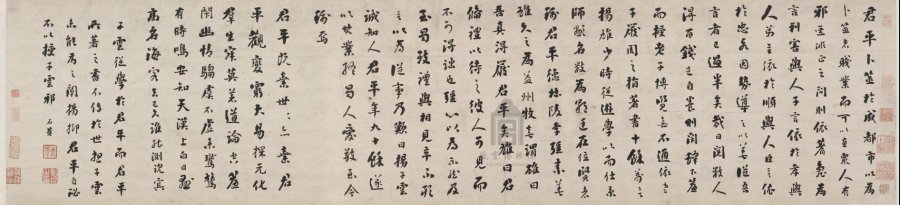 君平卜筮於成都市以為
卜筮者賤業而可以惠眾人有
邪惡非正之問則依蓍龜為
言利害與人子言依於孝與
人弟言依於順與人臣言依
於忠各因勢導之以善從吾
言者已過半矣裁日閱數人
得百錢足自養則閉肆下簾
而授老子博覽亡不通依老
子嚴周之指著書十餘萬言
揚雄少時從遊學以而仕京
師顯名數為朝廷在位賢者
稱君平德杜陵李彊素善
雄久之為益州牧喜謂雄曰
吾真得嚴君平矣雄曰君
備禮以待之彼人可見而
不可得詘也彊心以為不然及
至蜀致禮與相見卒不敢
言以為從事乃歎曰揚子雲
誠知人君平年九十餘遂
以其業終蜀人愛敬至今
稱焉
君平既棄世世亦棄君
平觀變窮大易探元化
群生寂寞綴道論空簾
閉幽情騶虞不虛來鸑鷟
有時鳴安知天漢上白日懸
高名海客去已久誰能測沈冥
子雲從學於君平而君平
所著之書不傳於世想子雲
未能為之闡揚抑君平自祕
不以授子雲邪